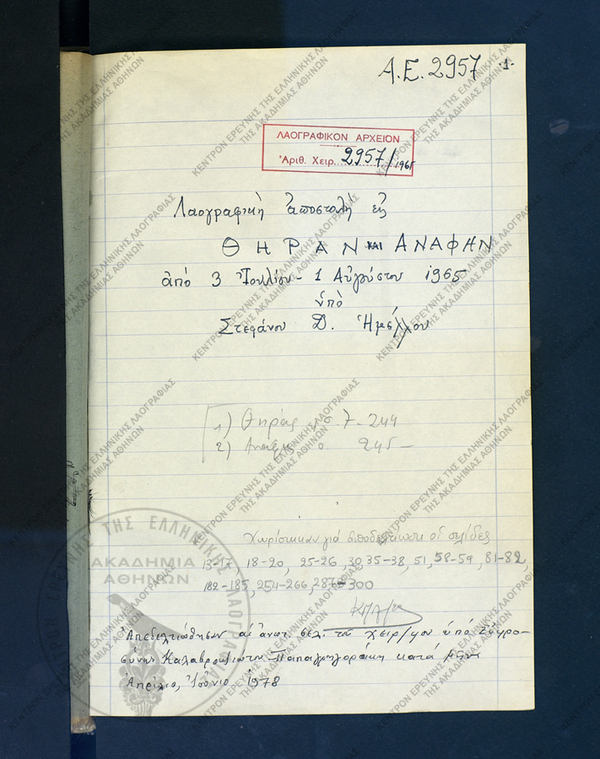 Α.Ε. 2957 ·1·
ΛΑΟΓΡΑΦΙΚΟΝ ΑΡΧΕΙΟΝ
Ἀριθ. Χειρ. 2957/1965
Λαογραφικὴ ἀποστολὴ εἰς
ΘΗΡΑΝ ΚΑΙ ΑΝΑΦΗΝ
ἀπό 3 Ἰουλίου - 1 Αὐγούστου 1965
ὑπὸ
Στεφάνου Δ. Ἠμέλλου
1) Θήρας 7-244
2) Ανάφης 245-
Χωρίστηκαν γιά ἀποδελτίωση οἱ σελίδες
13-17, 18-20, 25-26, 30, 35-38, 51, 58-59, 81-82,
182-185, 254-266, 287-300
Ἀπεδελτιώθησαν αἱ ἀνωτ. σελ. τοῦ χειρ/φου ὑπὸ Εὐφρο-
σύνης Παπαγρηγοράκη κατὰ μῆνα
Ἀπρίλιο, Ἰούνιο 1978
ΚΕΝΤΡΟΝ ΕΡΕΥΝΗΣ ΤΗΣ ΕΛΛΗΝΙΚΗΣ ΛΑΟΓΡΑΦΙΑΣ
ΤΗΣ ΑΚΑΔΗΜΙΑΣ ΑΘΗΝΩΝ
ΑΚΑΔΗΜΙΑ
ΑΘΗΝΩΝ